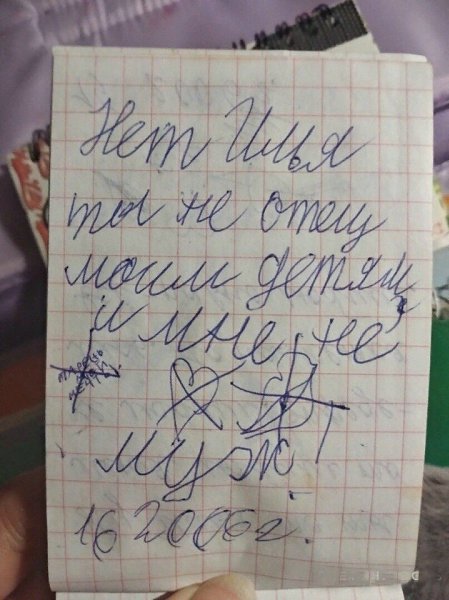 Нет Илья
ты не отец
моим детям,
и мне не
муж
16 2006г.